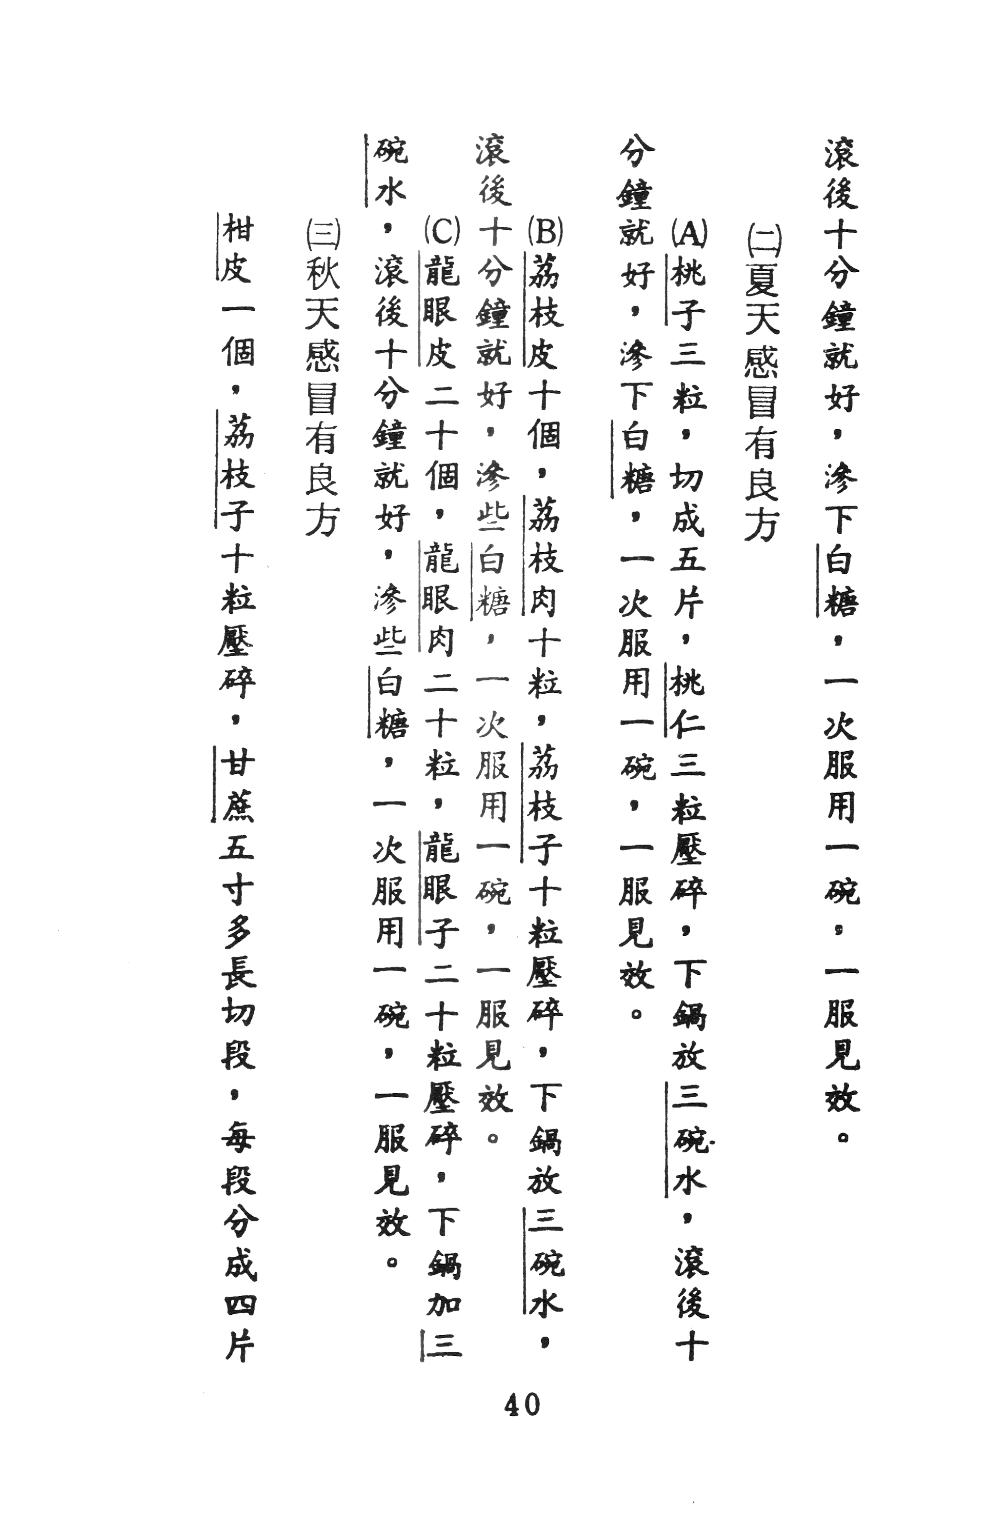 滾後十分鐘就好，滲下白糖，一次服用一碗，一服見效。
㈡夏天感冒有良方
(A)桃子三粒，切成五片，桃仁三粒壓碎，下鍋放三碗水，滾後十
分鐘就好，滲下白糖，一次服用一碗，一服見效。
(B)荔枝皮十個，荔枝肉十粒，荔枝子十粒壓碎，下鍋放三碗水，
滾後十分鐘就好，滲些白糖，一次服用一碗，一服見效。
(C)龍眼皮二十個，龍眼肉二十粒，龍眼子二十粒壓碎，下鍋加三
碗水，滾後十分鐘就好，滲些白糖，一次服用一碗，一服見效。
㈢秋天感冒有良方
柑皮一個，荔枝子十粒壓碎，甘蔗五寸多長切段，每段分成四片
40